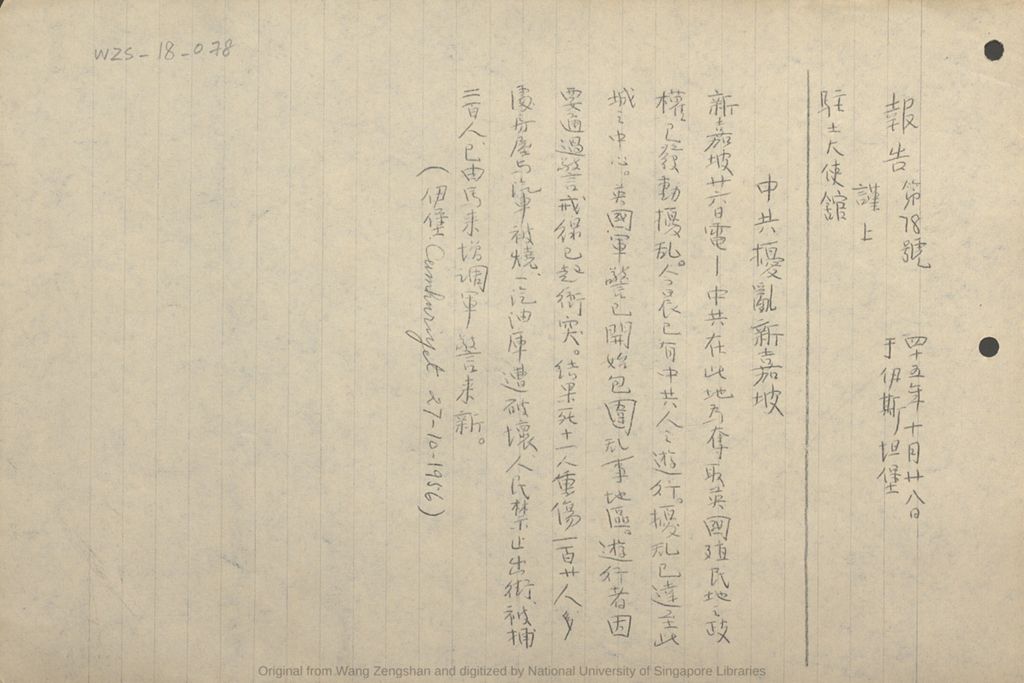 WZS-18-078
報告第78號
四十五年十月廿八日
于伊斯坦堡
謹上
駐土大使館
中共擾亂新嘉坡
新嘉坡廿六日電—中共在此地為奪取英國殖民地之政
權已發動擾乱。今晨已有中共人之遊行。擾乱已達至此
城之中心。英國軍警已開始包圍乱事地區。遊行者因
要通過警戒線已起衝突。結果死十一人重傷一百廿人多
處房屋与汽車被燒、一汽油庫遭破壞、人民禁止出街、被捕
二百人、已由馬来增调軍警来新。
(伊堡Cumhuriyet 27-10-1956)
Original from Wang Zengshan and digitized by National University of Singapore Libraries